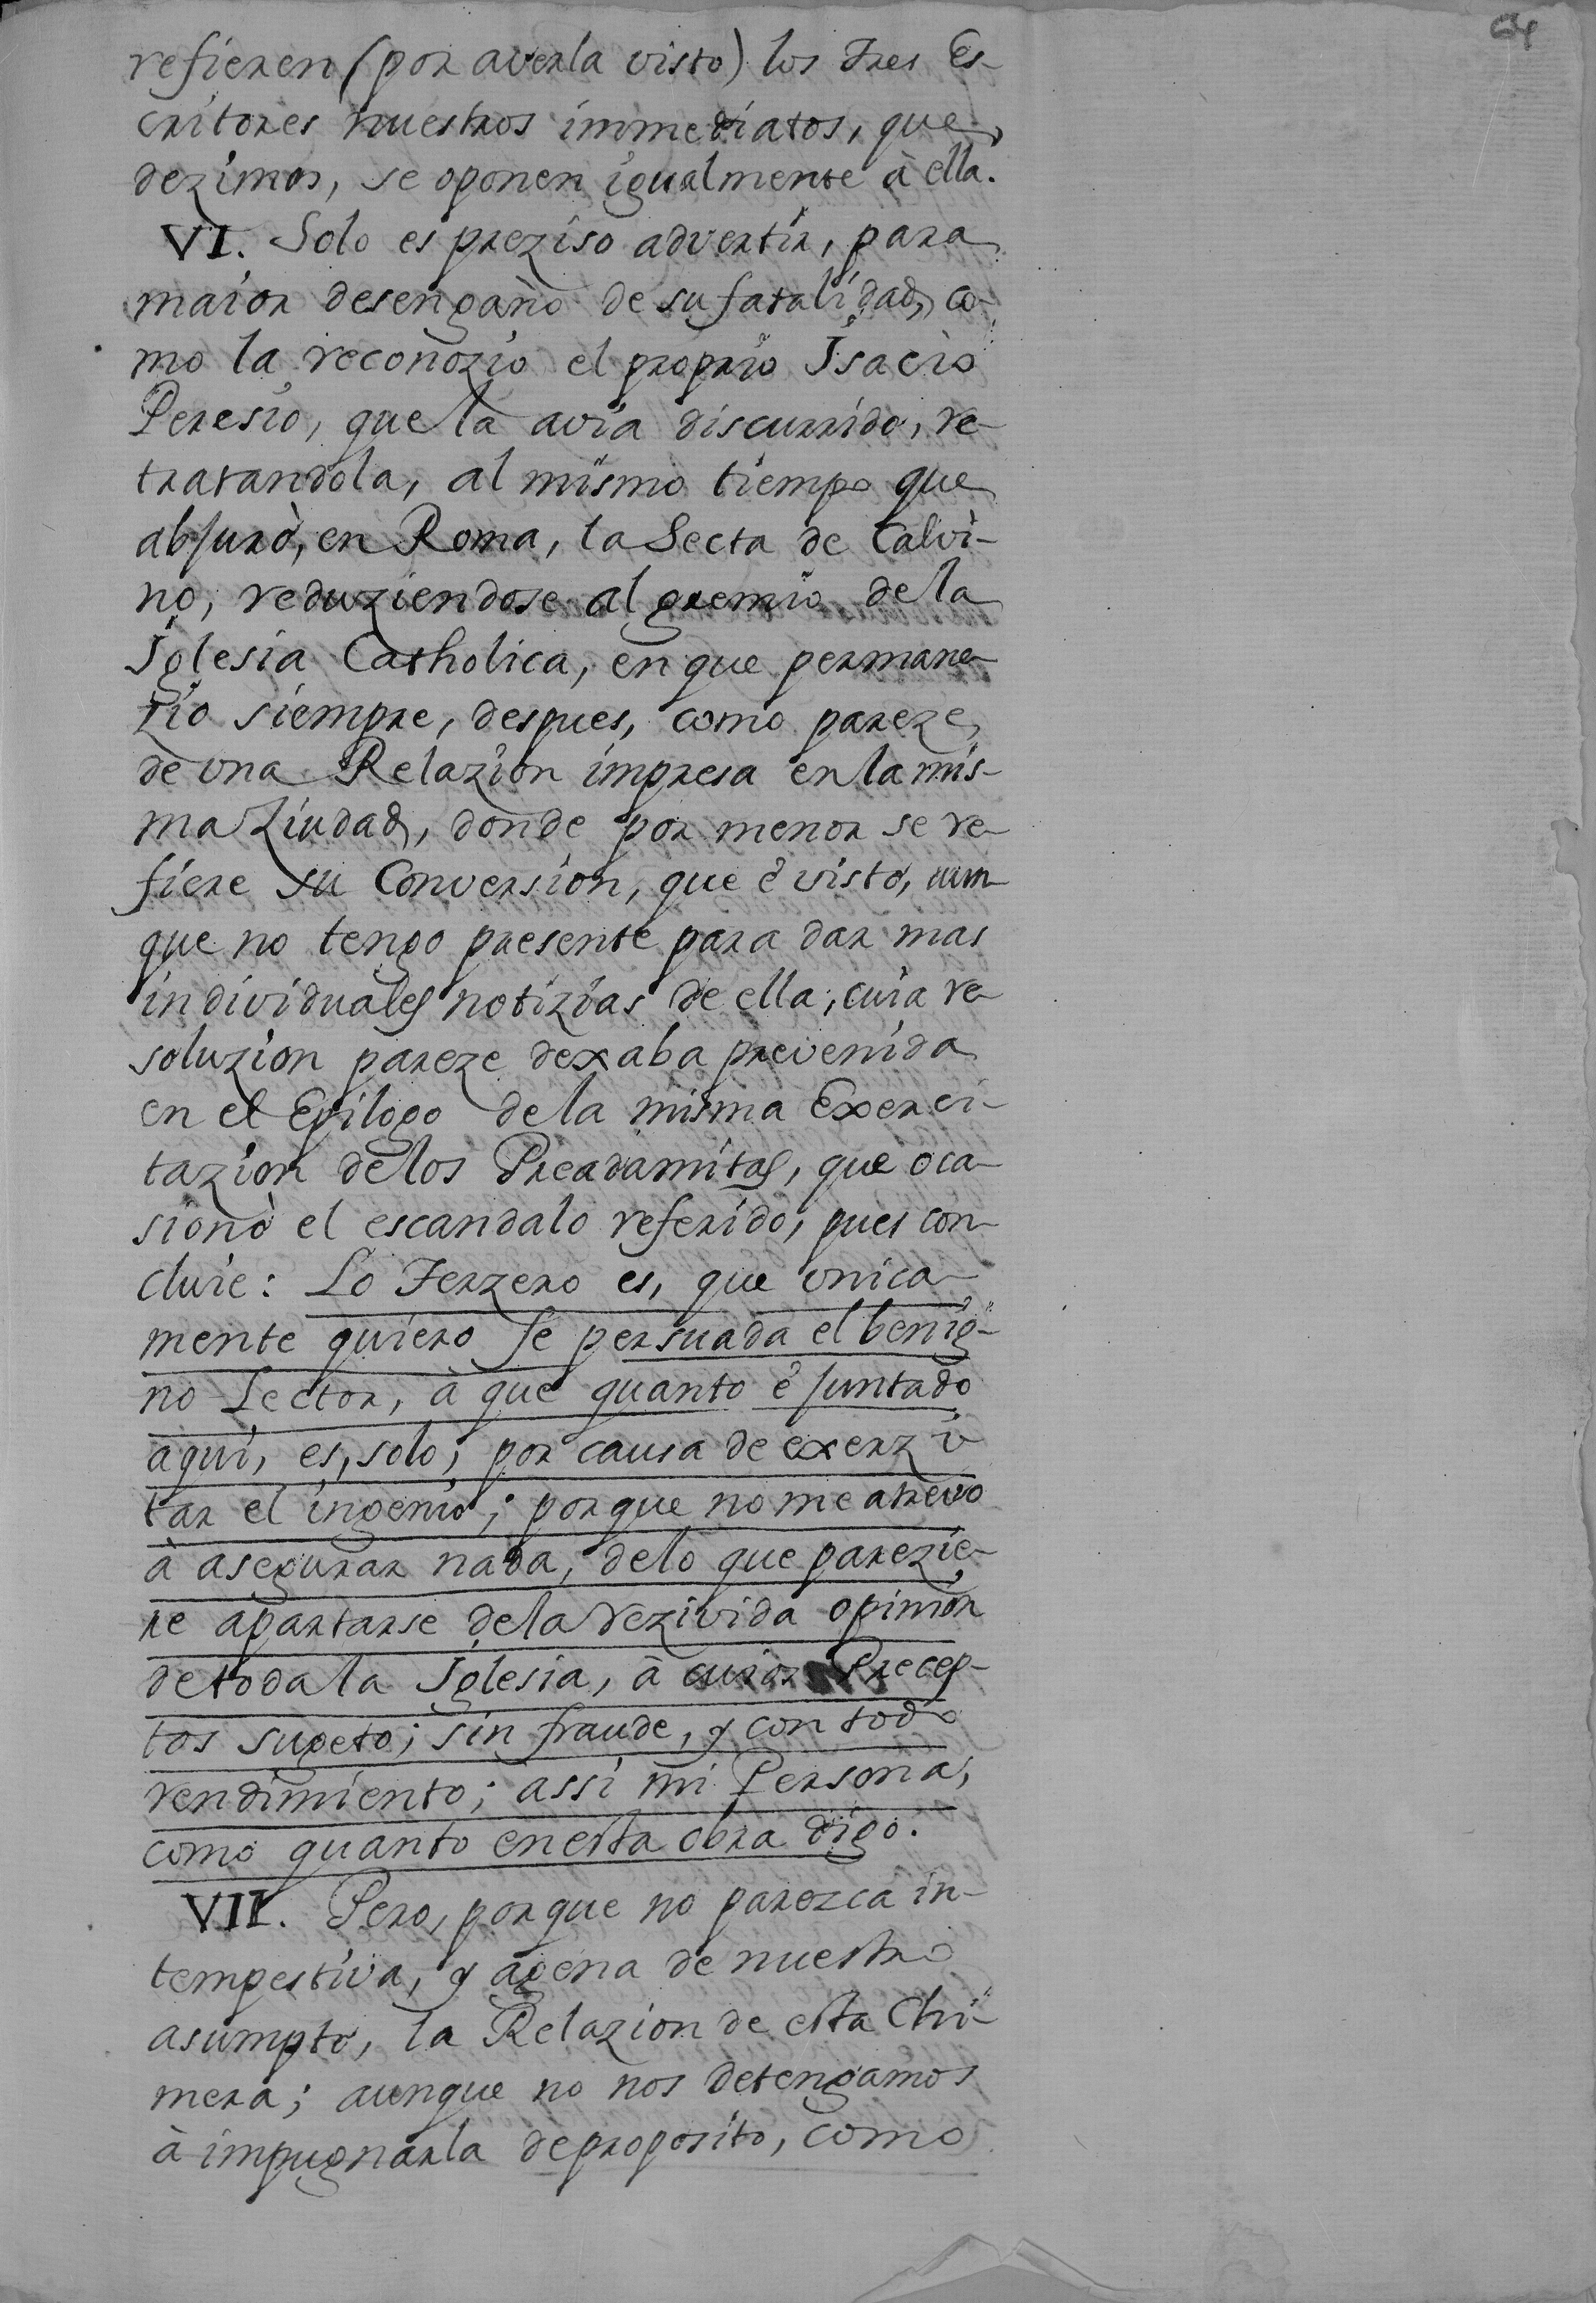 refieren (por averla visto) los Tres Es-
critores nuestros immediatos, que
dezimos, se oponen igualmente à ella.
VI. Solo es preziso advertir, para
maior desengaño de su fatalidad, co-
mo la reconozio el proprio Isacio
Peresio, que la avia discurrido, re-
tratandola, al mismo tiempo que
abjurò, en Roma, la Secta de Calvi-
no, reduziendose al gremio de la
Iglesia Catholica, en que permane-
zio siempre, despues, como pareze,
de una Relazion impresa en la mis-
ma Ziudad, donde por menor se re-
fiere su Conversion, que è visto, aun-
que no tengo presente para dar mas
individuales notizias de ella; cuia re-
soluzion pareze dexaba prevenida
en el Epilogo de la misma Exerci-
tazion de los Preadamitas, que oca-
sionò el escandalo referido, pues con-
cluie: Lo Terzero es, que unica-
mente quiero se persuada el benig-
no Lector, à que quanto è juntado
aqui, es, solo, por causa de exerzi-
tar el ingenio; porque no me atrevo
à asegurar nada, de lo que parezie-
re apartarse de la rezivida opinion
de toda la Iglesia, à cuios Precep-
tos sugeto; sin fraude, y con todo
rendimiento; assi mi Persona,
como quanto en esta obra digo.
VII. Pero, porque no parezca in-
tempestiva, y agena de nuestro
asumpto, la Relazion de esta Chi-
mera; aunque no nos detengamos
à impugnarla de proposito, como